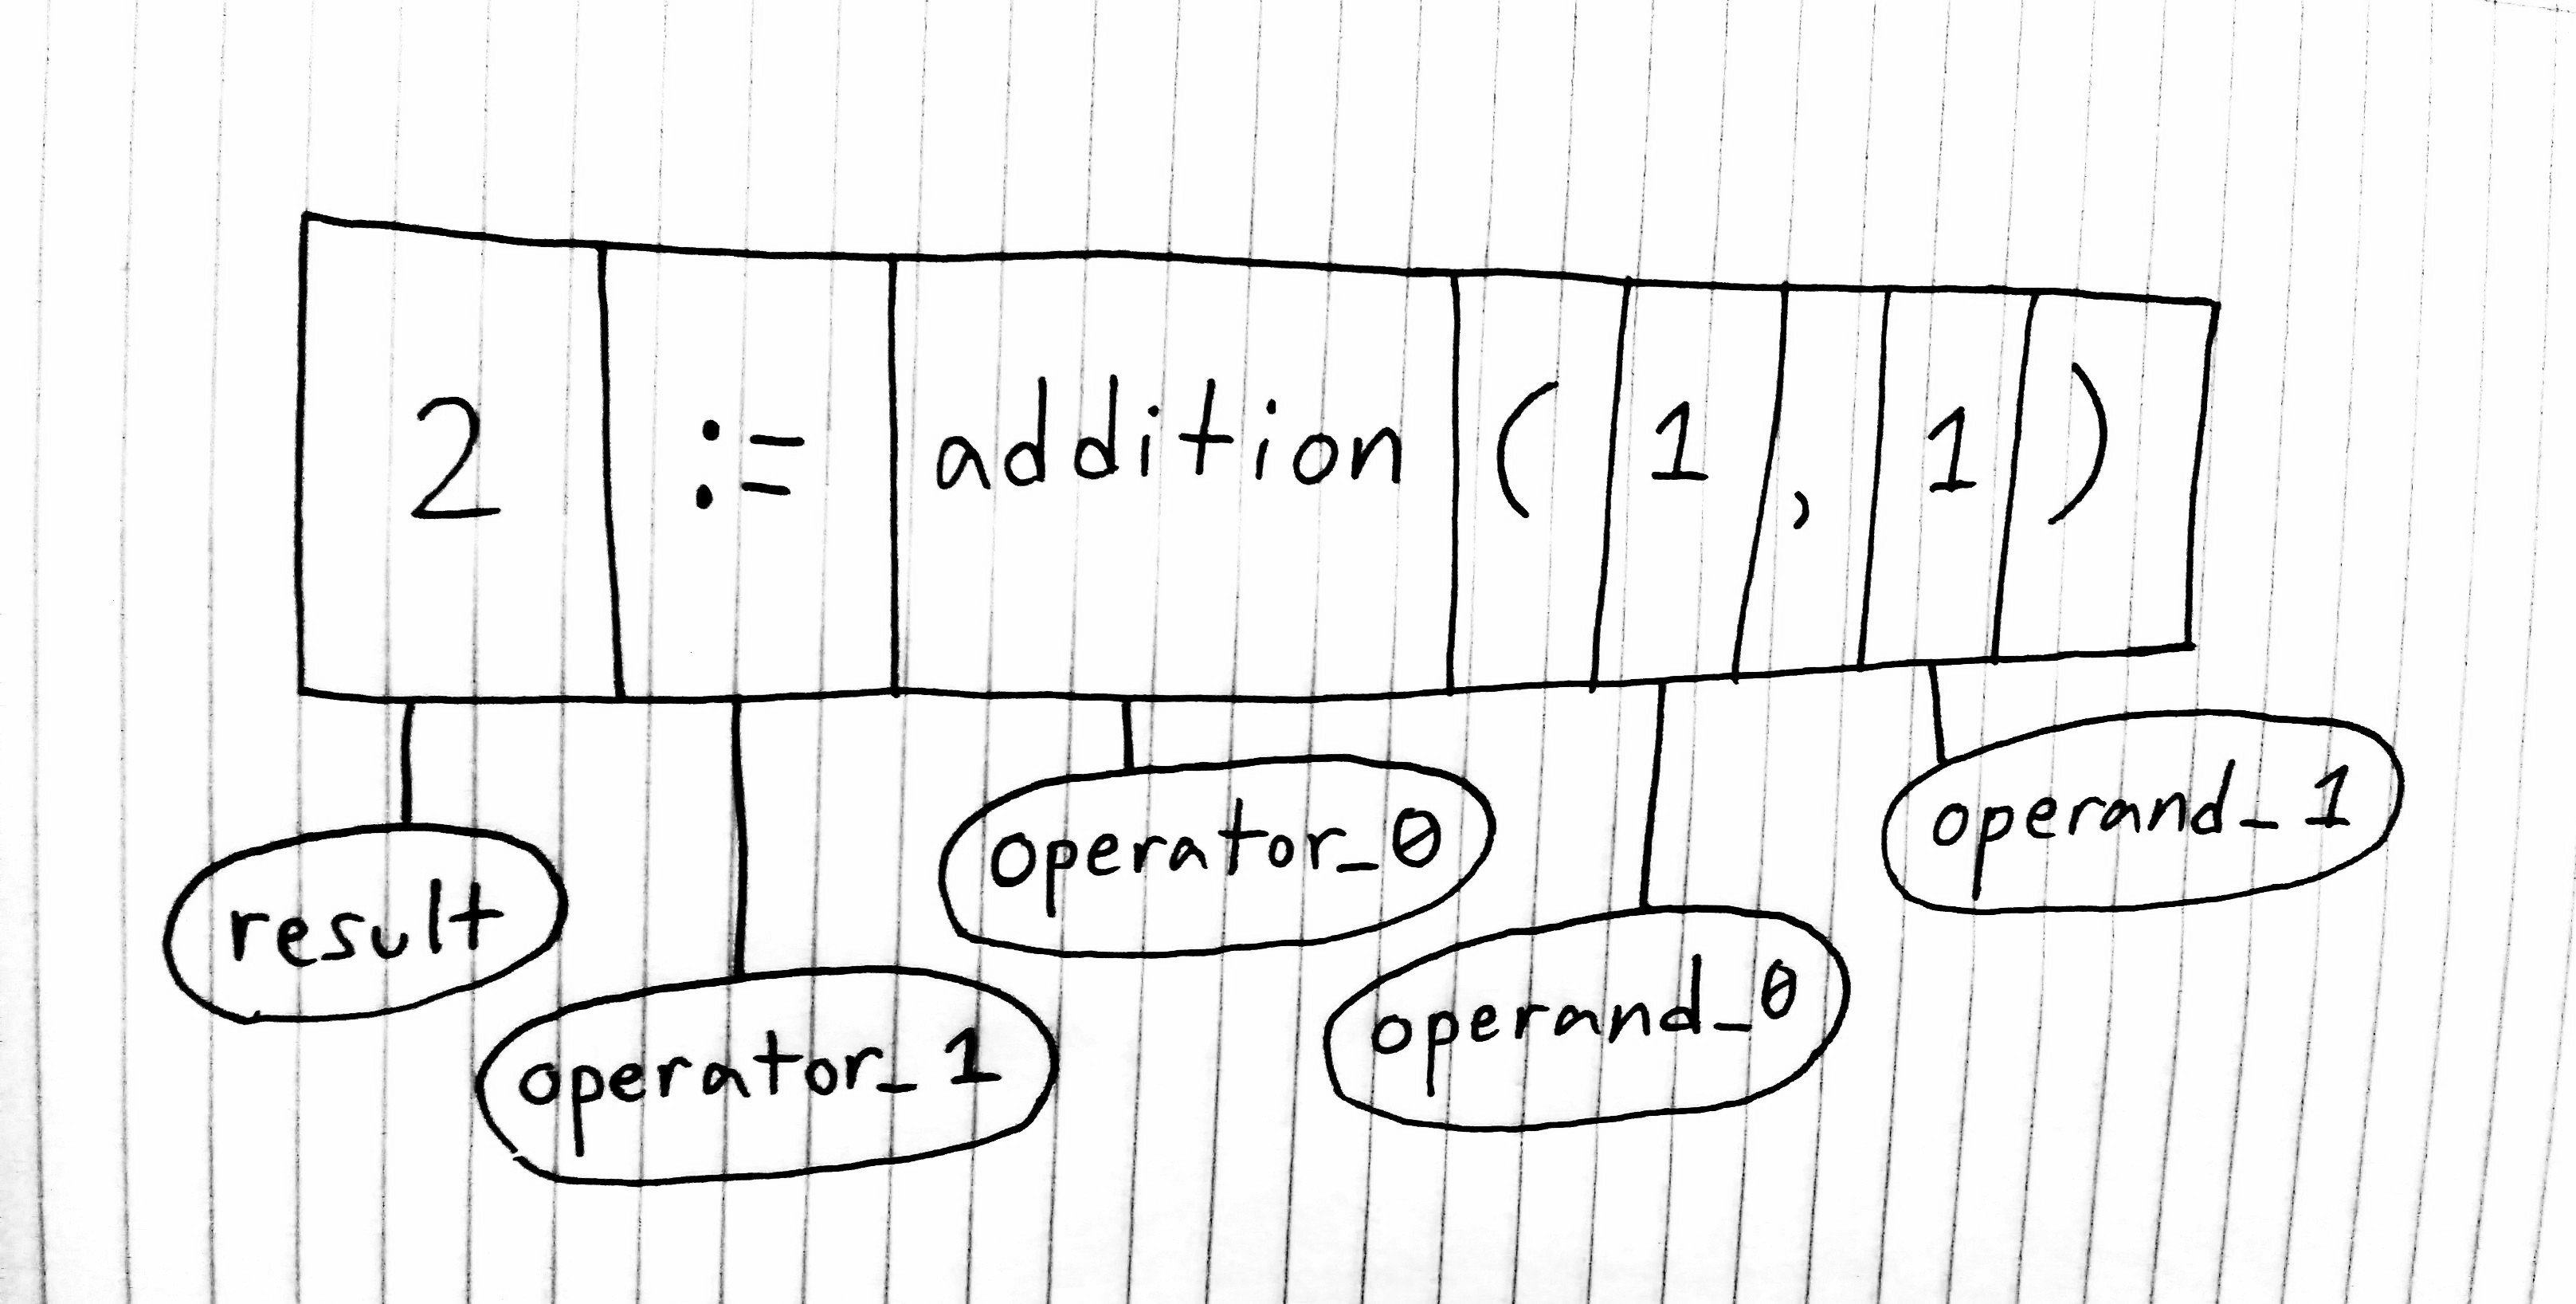 2 := addition ( 1 , 1 )
result
operator_1
operator_0
operand_0
operand_1